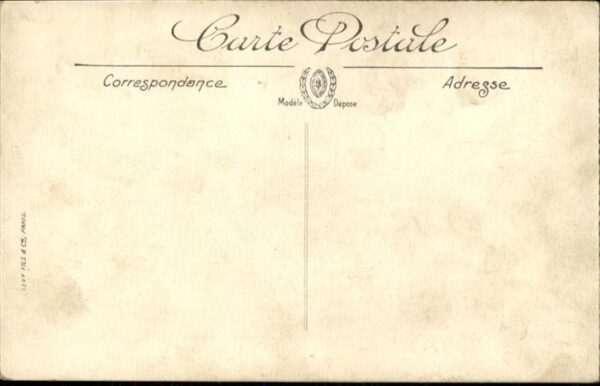 Carte Postale
Correspondance
Adresse
Modèle Déposé
LEVY FILS & Cie. PARIS